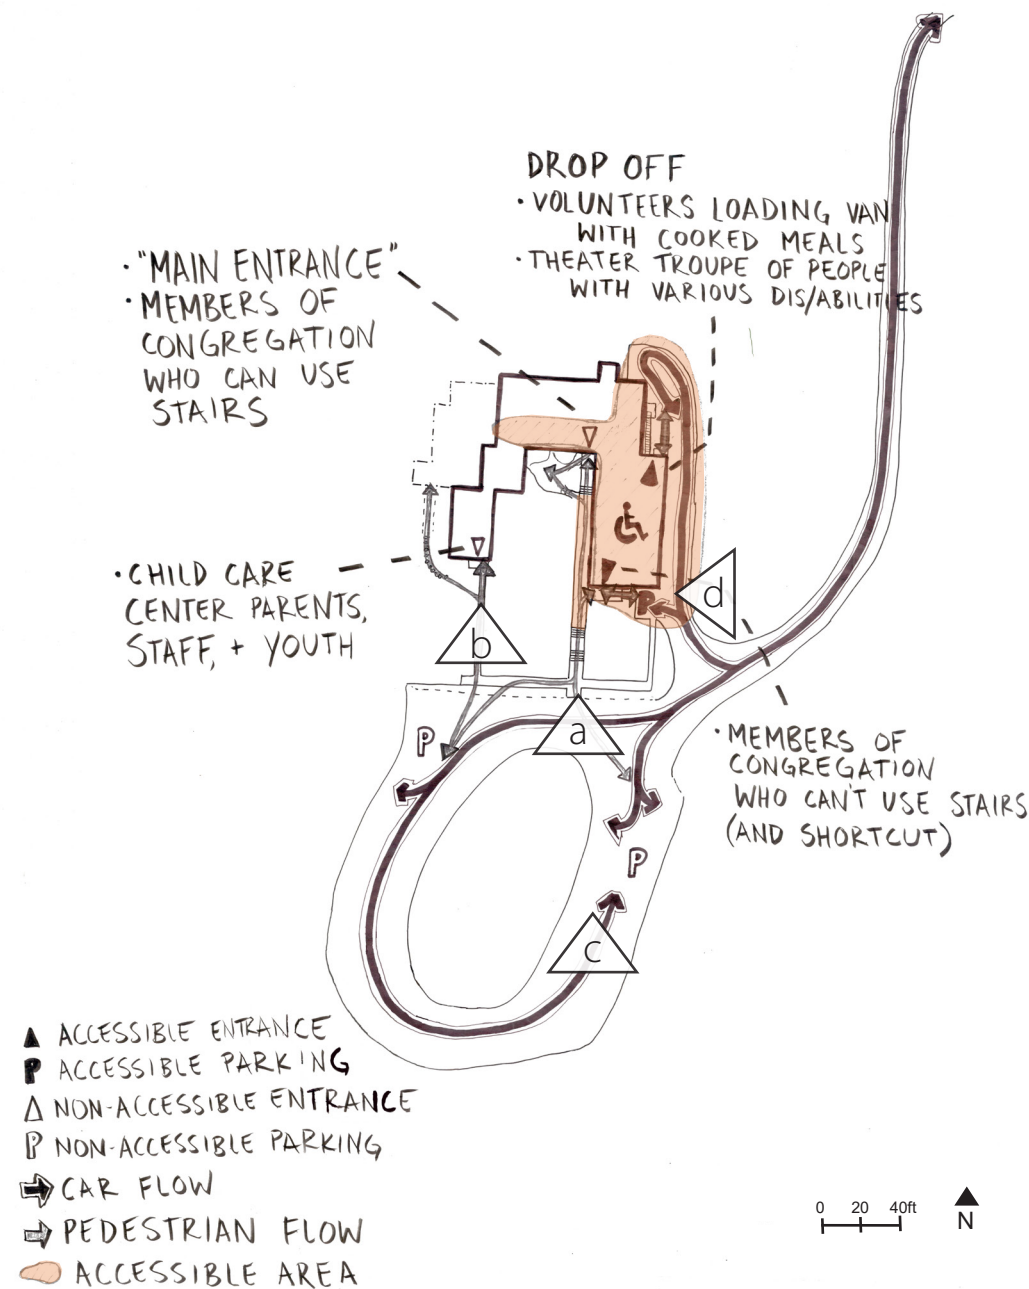 DROP OFF
· VOLUNTEERS LOADING VAN
WITH COOKED MEALS
· THEATER TROUPE OF PEOPLE
WITH VARIOUS DIS/ABILITIES
· "MAIN ENTRANCE"
· MEMBERS OF
CONGREGATION
WHO CAN USE
STAIRS
· CHILD CARE
CENTER PARENTS,
STAFF, + YOUTH
P
d
b
a
P
· MEMBERS OF
CONGREGATION
WHO CAN'T USE STAIRS
(AND SHORTCUT)
P
c
ACCESSIBLE ENTRANCE
P ACCESSIBLE PARKING
NON-ACCESSIBLE ENTRANCE
P NON-ACCESSIBLE PARKING
CAR FLOW
PEDESTRIAN FLOW
ACCESSIBLE AREA
0 20 40ft
N